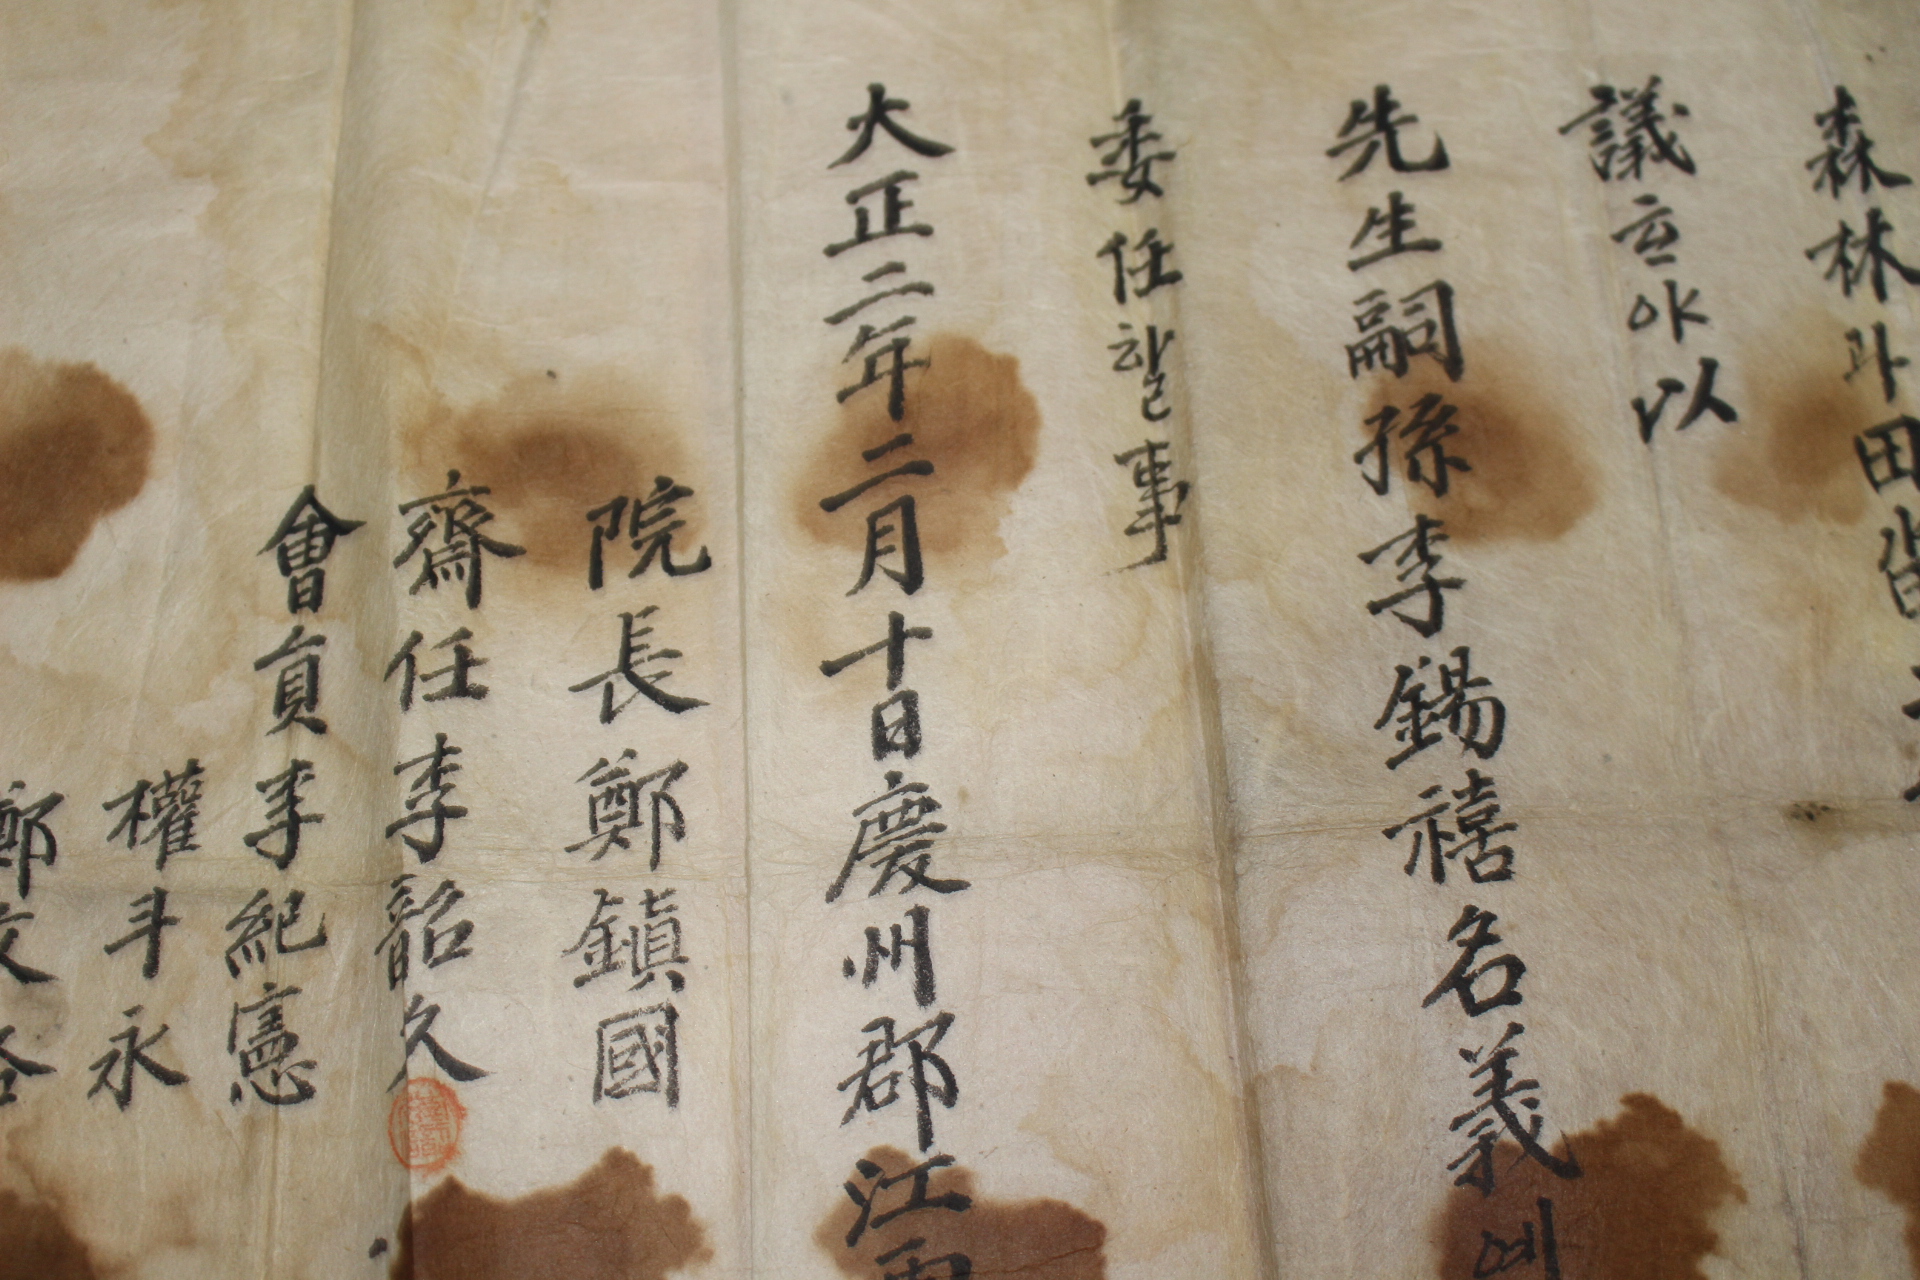 森林과田畓
議호야以
先生嗣孫李錫禧名義에
委任할事
大正二年二月十日慶州郡江
院長鄭鎭國
齋任李韶久
會員李紀憲
權斗永
鄭